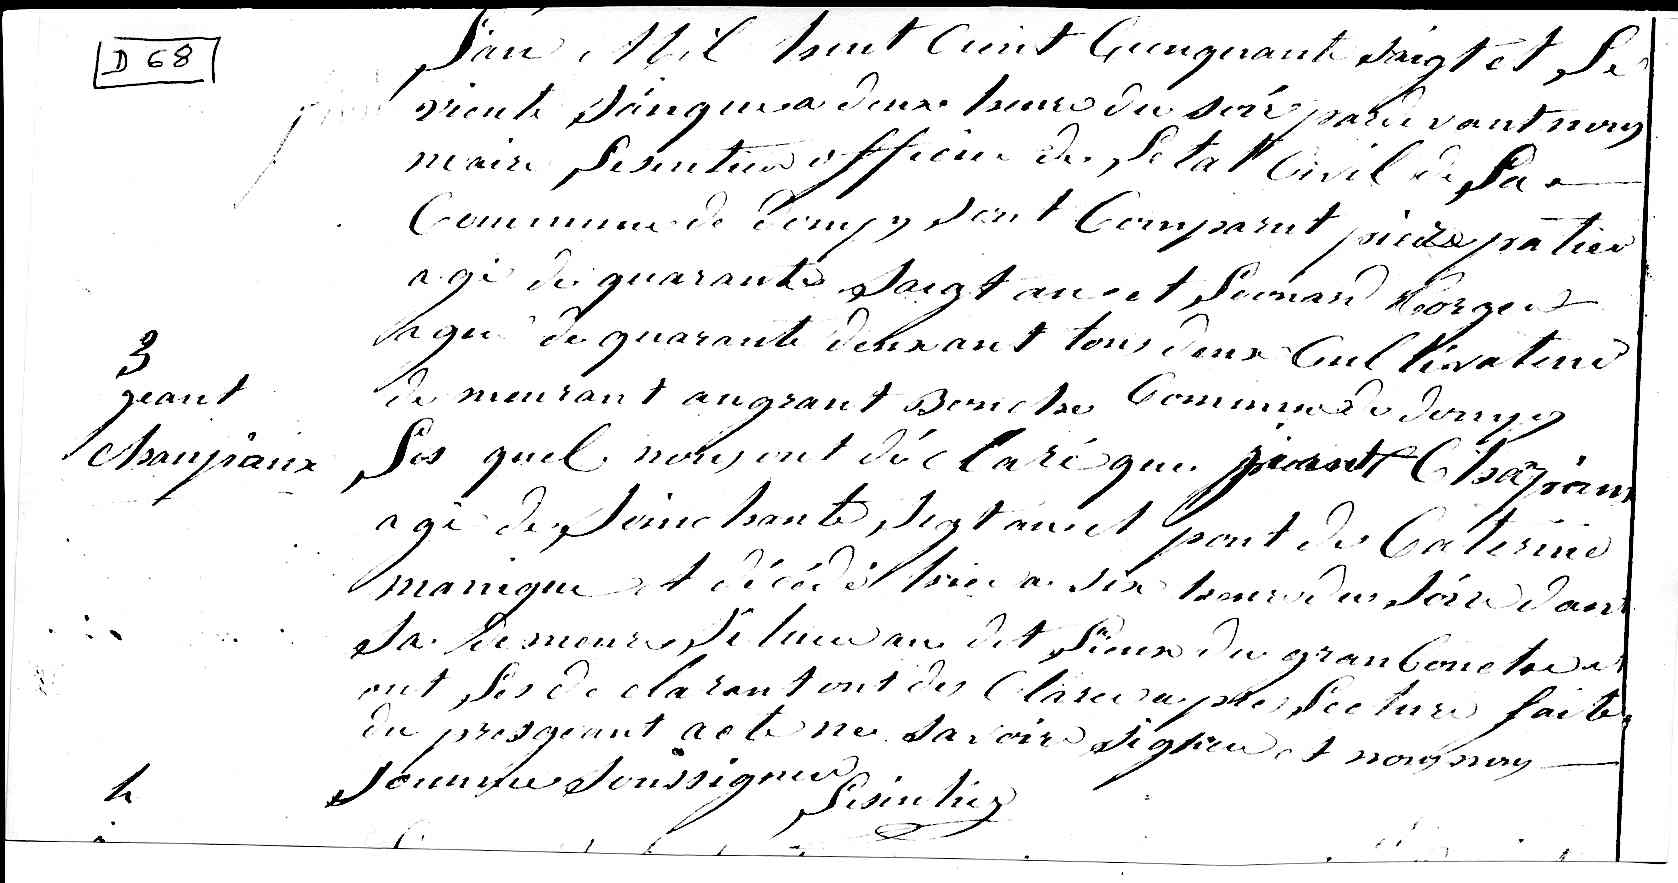 D 68
L'an Mil huit Cent Cinquante saigt et Le
viente sainque a deux heure du soir par devant nous
maire Lesentier officier de Letat Civil de La
Commune de dompy sont Comparut pierre patier
agé de quarante saigt an et Leonard Korget
agué de quarante deux ant tous deux Cultivateur
de meurant au grant Bouche Commune de dompy
Les quel nous ont déClaré que jeant Chazjaux
agé de soinchante segt an et pont de Caterine
manique et décédé hier a six heure du soire dans
sa demeure Situe au dit Lieux du gran bouche et
ont Les declarant ont des Clarer apres Lecture faite
du presgeant acte ne savoire signer et nous nous
somme soussigner
Lesentier
3
jeant
Chaujaux
h